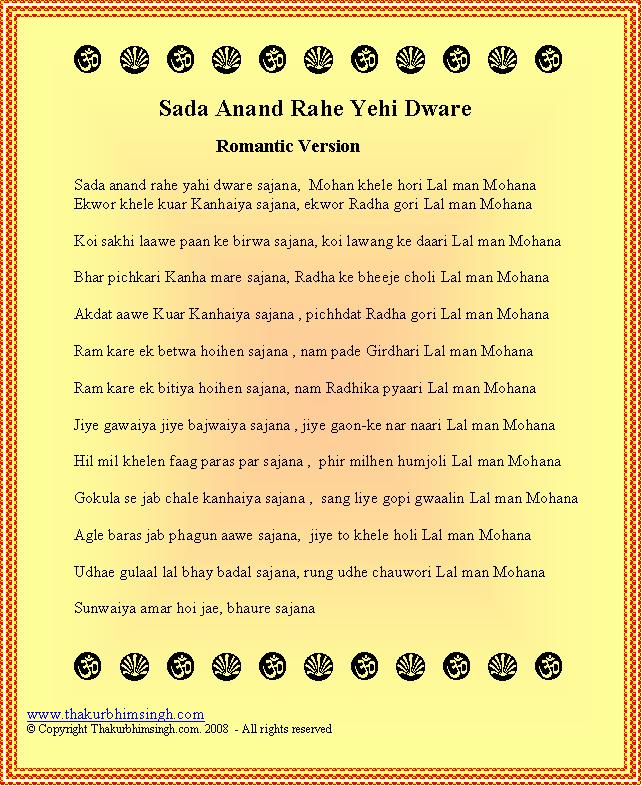 Sada Anand Rahe Yehi Dware
Romantic Version
Sada anand rahe yahi dware sajana, Mohan khele hori Lal man Mohana
Ekwor khele kuar Kanhaiya sajana, ekwor Radha gori Lal man Mohana
Koi sakhi laawe paan ke birwa sajana, koi lawang ke daari Lal man Mohana
Bhar pichkari Kanha mare sajana, Radha ke bheeje choli Lal man Mohana
Akdat aawe Kuar Kanhaiya sajana , pichhdat Radha gori Lal man Mohana
Ram kare ek betwa hoihen sajana , nam pade Girdhari Lal man Mohana
Ram kare ek bitiya hoihen sajana, nam Radhika pyaari Lal man Mohana
Jiye gawaiya jiye bajwaiya sajana , jiye gaon-ke nar naari Lal man Mohana
Hil mil khelen faag paras par sajana , phir milhen humjoli Lal man Mohana
Gokula se jab chale kanhaiya sajana , sang liye gopi gwaalin Lal man Mohana
Agle baras jab phagun aawe sajana, jiye to khele holi Lal man Mohana
Udhae gulaal lal bhay badal sajana, rung udhe chauwori Lal man Mohana
Sunwaiya amar hoi jae, bhaure sajana
www.thakurbhimsingh.com
© Copyright Thakurbhimsingh.com. 2008 - All rights reserved